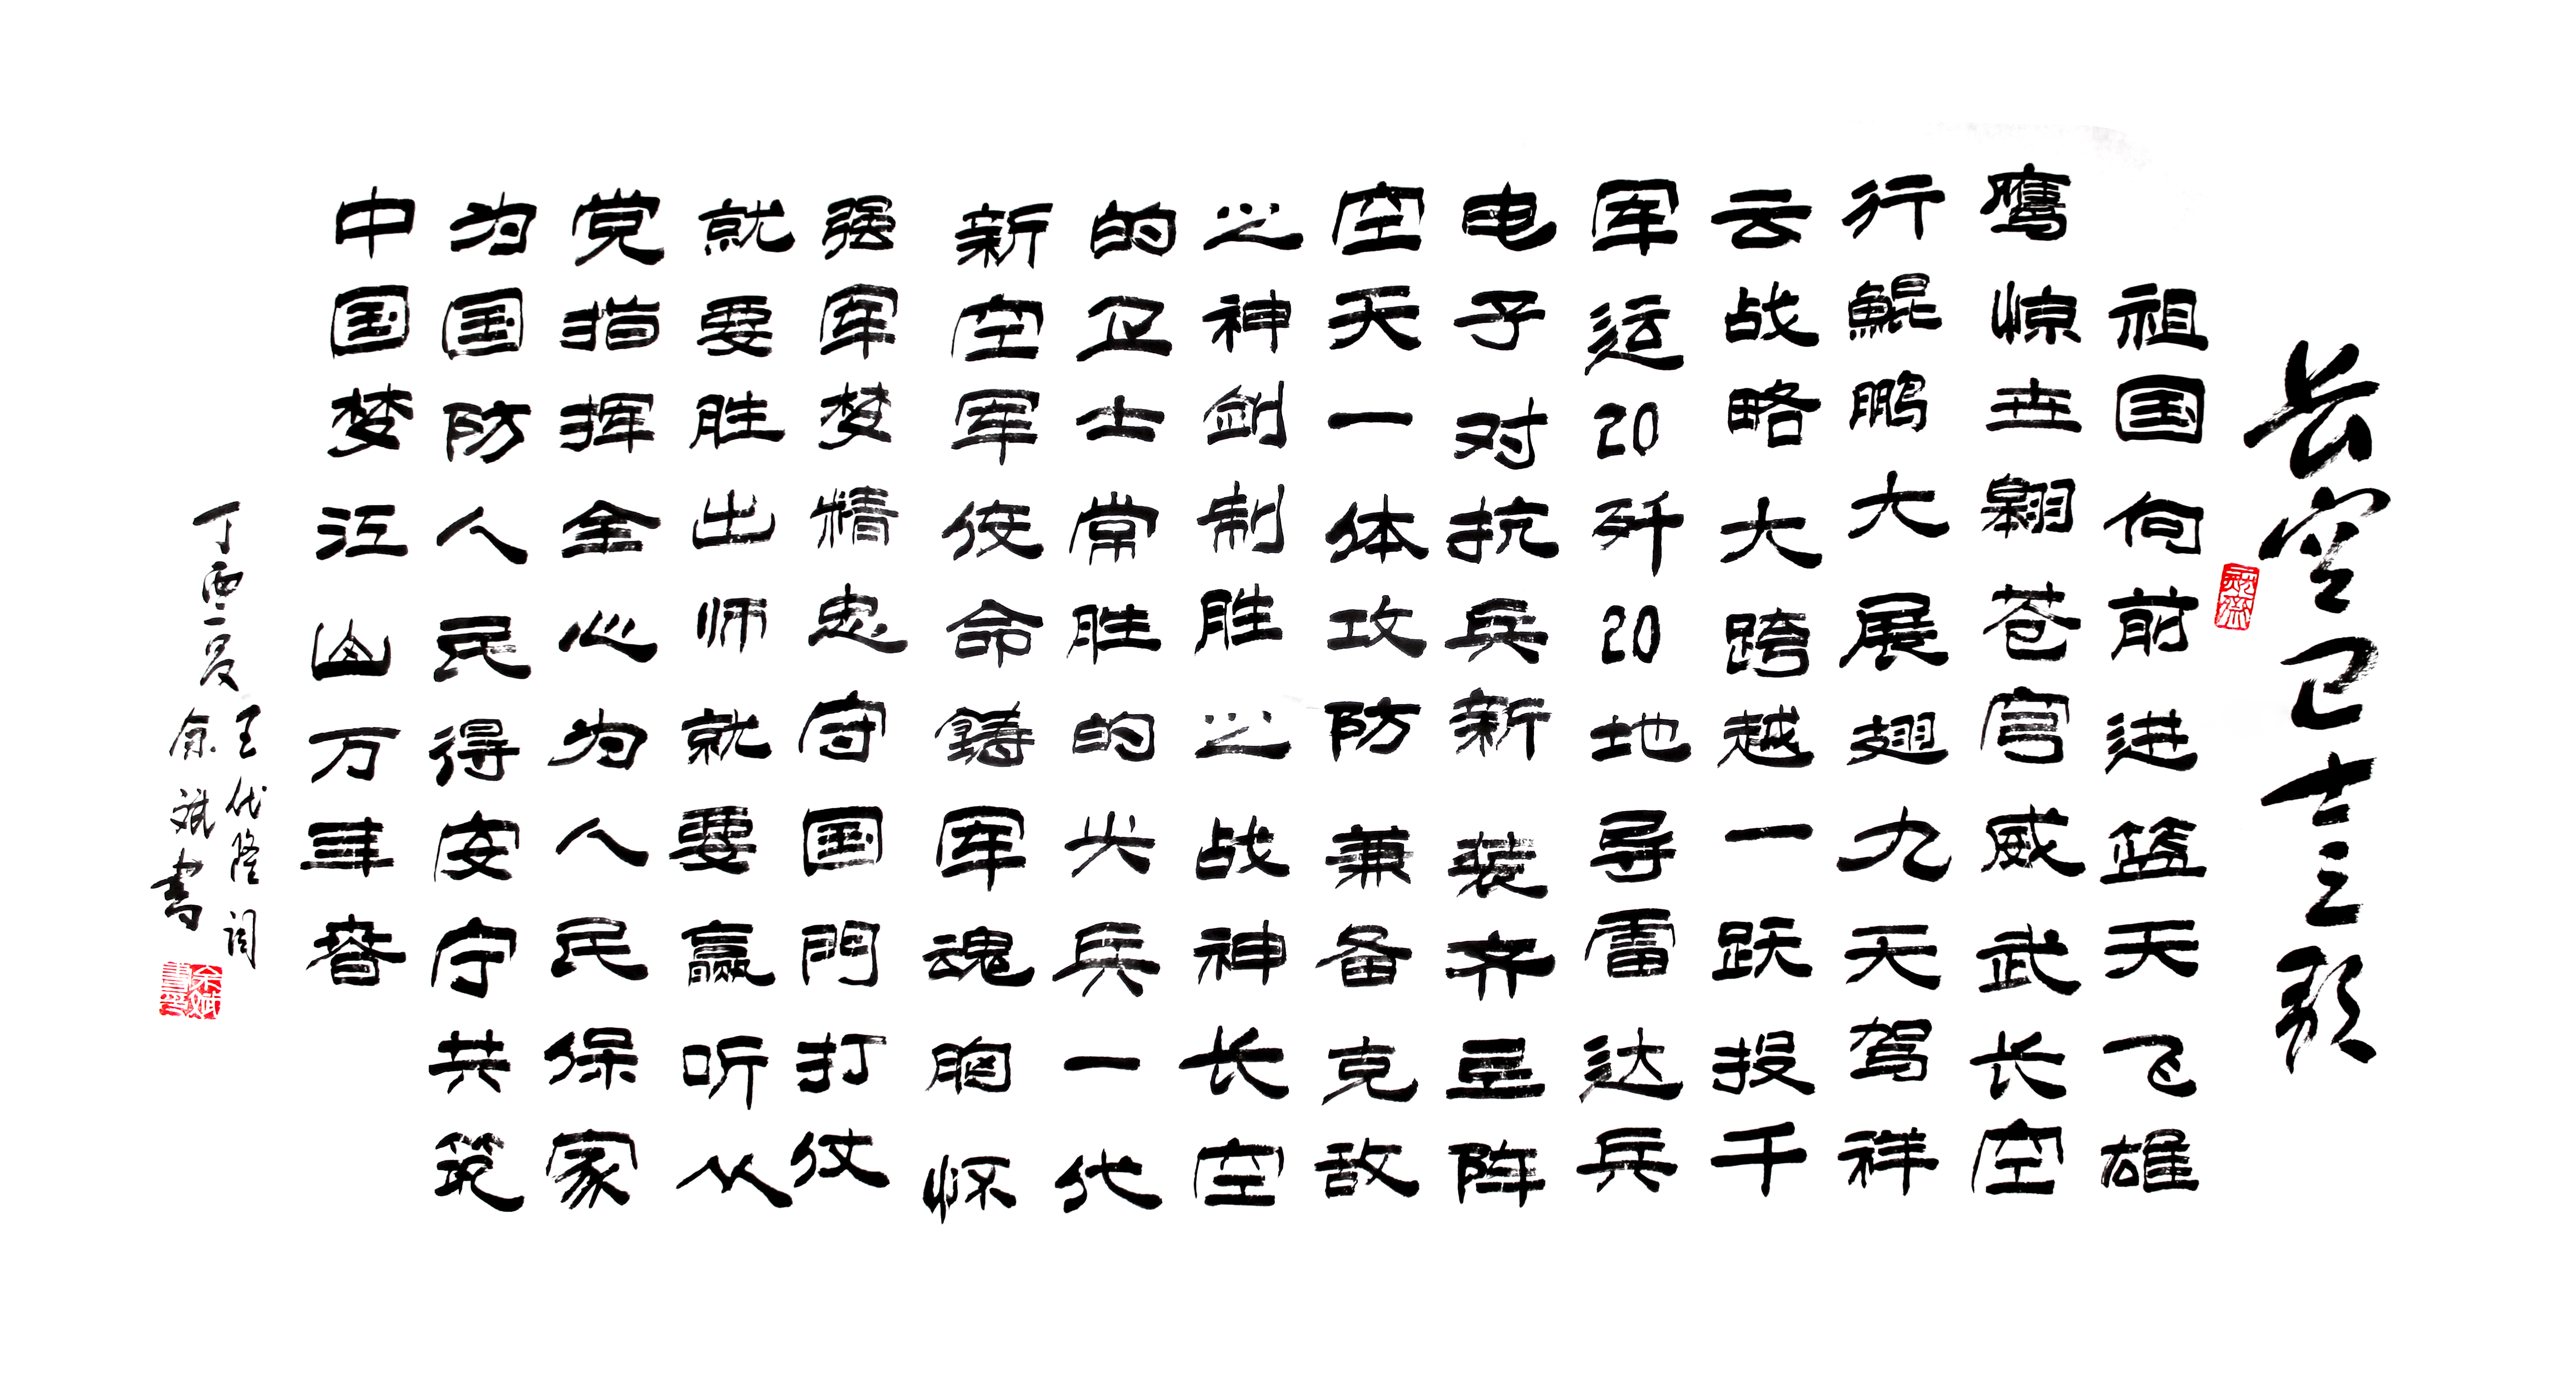 长空卫士之歌
祖国向前进蓝天飞雄
鹰惊世翱苍穹威武长空
行鲲鹏大展翅九天驾祥
云战略大跨越一跃投千
军运20歼20地导雷达兵
电子对抗兵新装齐阵
空天一体攻防兼备克敌
之神剑制胜之战神长空
的卫士常胜的尖兵一代
新空军使命鑄军魂胸怀
强军梦精忠守国門打仗
就要胜出师就要赢听从
党指挥全心为人民保家
为国防人民得安宁共筑
中国梦江山万年春
丁酉之夏
王代隆词
余斌書
余斌書印